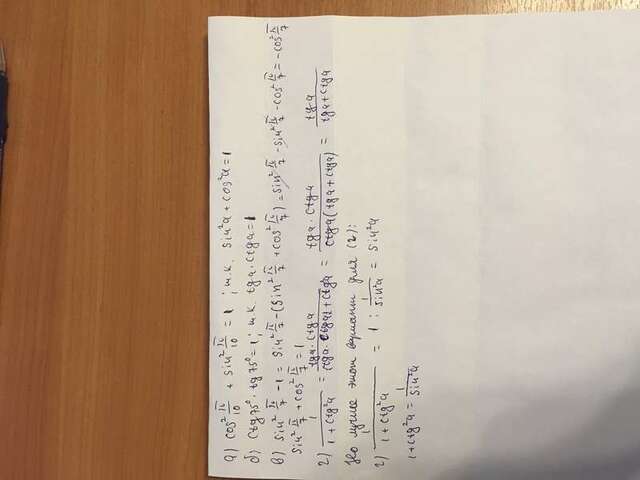 а) cos² π/10 + sin² π/10 = 1 ; т.к. sin²a + cos²a = 1
б) ctg 75° · tg 75° = 1 ; т.к. tg a · ctg a = 1
в) sin² π/7 - 1 = sin² π/7 - (sin² π/7 + cos² π/7) = sin² π/7 - sin² π/7 - cos² π/7 = - cos² π/7
sin² π/7 + cos² π/7 = 1
г) 1/(1 + ctg²a) = tg a · ctg a/(tg a · ctg a + ctg²a) = tg a · ctg a/(ctg a (tg a + ctg a)) = tg a/(tg a + ctg a)
Но лучше этот вариант для (г):
г) 1/(1 + ctg²a) = 1 : 1/sin²a = sin²a
1 + ctg²a = 1/sin²a